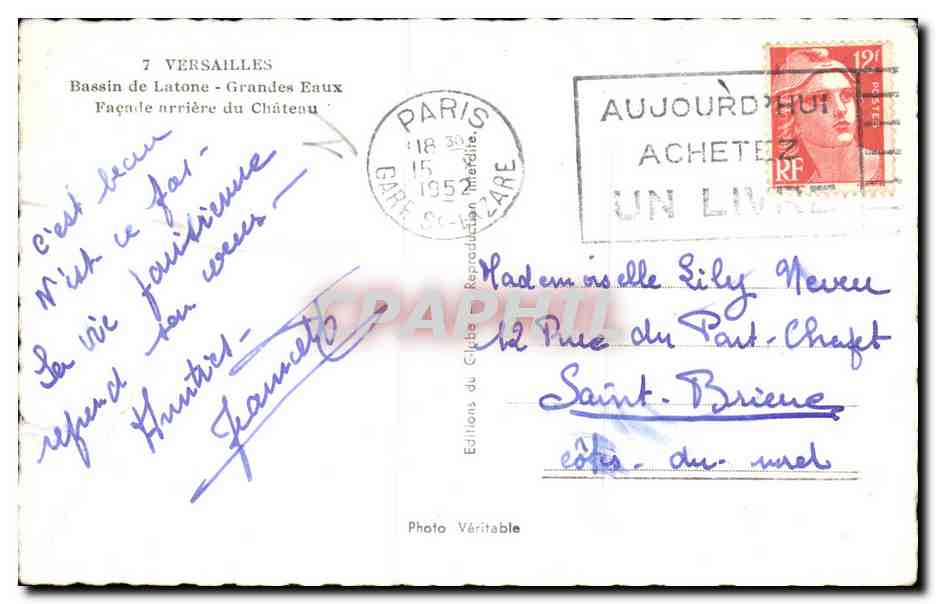 7 VERSAILLES
Bassin de Latone - Grandes Eaux
Façade arrière du Château
c'est beau
N'est ce pas -
La vie parisienne
reprend son cours -
Amitiés -
PARIS
18 30
15
1952
GARE ST-LAZARE
AUJOURD'HUI
ACHETEZ
UN LIVRE
12F
POSTES
RF
Editions du Globe - Reproduction Interdite.
Mademoiselle Lily Neveu
12 Rue du Port-
Saint-Brieuc
côtes-du-nord
Photo Véritable
CPAPHIL